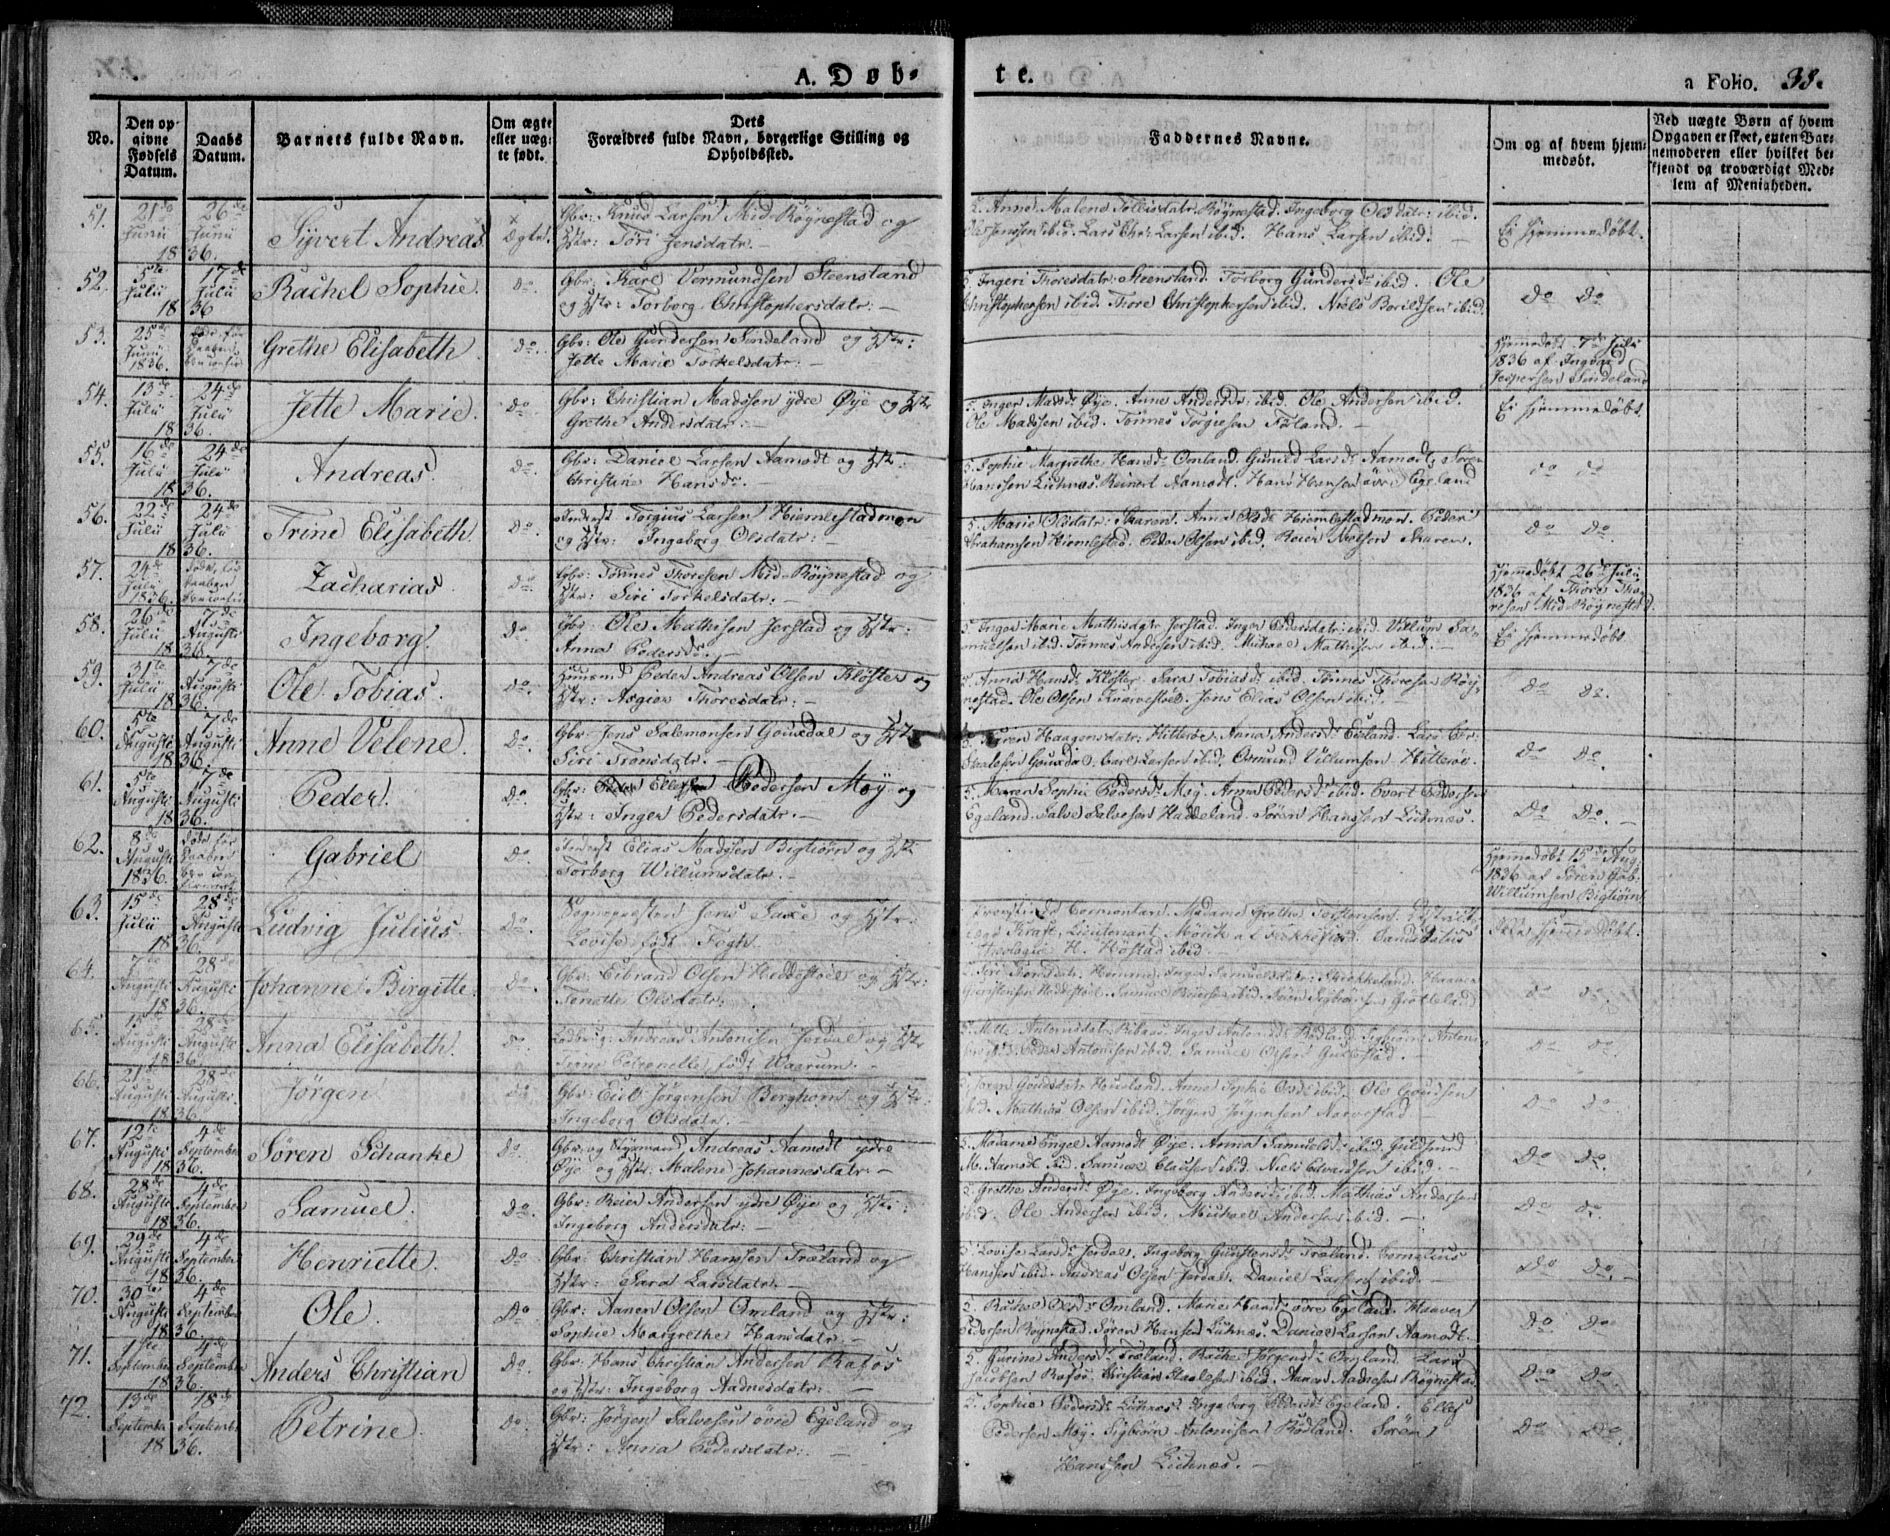 A. Døb-
te.
a Folio. 38.
No.
Den op-
givne
Fødsels
Datum.
Daabs
Datum.
Barnets fulde Navn.
Om ægte
eller uæg-
te født.
Dets
Forældres fulde Navn, borgerlige Stilling og
Opholdssted.
Faddernes Navne.
Om og af hvem hjem-
medøbt.
Ved uægte Børn af hvem
Opgaven er skeet, enten Bar-
nemoderen eller hvilket be-
kjendt og troværdigt Med-
lem af Menigheden.
51. 21de Junii 1836. 26de Junii
Syvert Andreas. Ægte.
Gbr: Knud Larsen Mid-Røynestad og
Hstr: Tøri Jensdatr. —
Anne Malene Tollisdatr Røynestad. Ingeborg Olsdatr: ibid.
Jensen ibid. Lars Chr: Larsen ibid. Hans Larsen ibid. —
Ei hjemmedøbt.
52. 5te Julii 1836 17de Julii
Rachel Sophie. Do.
Gbr: Karl Vermundsen Steensland
og Hstr: Torborg Christophersdatr: —
5. Ingeri Thoresdatr: Steensland. Torborg Gundersdr ibid. Ole
Christophersen ibid. Thore Christophersen ibid. Niels Borildsen ibid.
Do Do
53. 25de Junii 1836.
Grethe Elisabeth. Do.
Gbr: Ole Gundersen Sindeland og Hstr:
Jette Marie Torkelsdatr: —
Hjemmedøbt 7de Julii
1836 af Ingvald
Jespersen Sindeland
54. 13de Julii 1836. 24de Julii
Jette Marie. Do.
Gbr: Christian Madssen ydre Øye og Hstr
Grethe Andersdatr: —
5. Inger Madsdr Øye. Anne Andersdr: ibid. Ole Andersen ibid.
Ole Madssen ibid. Tønnes Torgiesen Føland. —
Ei hjemmedøbt
55. 16de Julii 1836. 24de Julii
Andreas. Do.
Gbr: Daniel Larsen Aamodt og Hstr:
Christine Hansdr. —
5. Sophie Margrethe Hansdr Omland. Gunild Larsdr Aamodt. Søren
Hanssen Lichnæs. Reinert Aamodt. Hans Hansen övre Egeland
do do
56. 22de Julii 1836. 24de Julii
Trine Elisabeth Do.
Torgius Larsen Hiemlestadmon
og Hstr: Ingeborg Olsdatr: —
5. Marie Olsdatr: Skaren. Anna Olsdr Hiemlestadmon. Peder
Abrahamsen Hiemlestad. Peder Olsen ibid. Reier Nielsen Skaren.
Do Do.
57. 24de Julii 1836.
Zacharias Do.
Gbr: Tønnes Thoresen Mid-Røynestad og
Hstr: Siri Torkelsdatr: —
Hjemmedøbt 26de Julii
1836 af Thore Tho-
resen Mid-Røynestad.
58. 26de Julii 1836. 7de Augusti
Ingeborg. Do
Gbr: Ole Mathisen Jerstad og Hstr:
Anna Pedersdr. —
5. Inger Marie Mathisdatr Jerstad. Inger Pedersdatr: ibid. Villum Sa-
muelsen ibid. Tønnes Andersen ibid. Michael Mathisen ibid. —
Ei hjemmedøbt
59. 31te Julii 1836. 7de Augusti
Ole Tobias. Do.
Huusmd Peder Andreas Olsen Kløster og
Hstr: Asgier Thoresdatr: —
Anna Hansdr Kløster. Sara Tobiasdr ibid. Tønnes Thoresen Røy-
nestad. Ole Olsen Knarvestøel. Jens Elias Olsen ibid. —
Do Do.
60. 5te Augusti 1836. 7de Augusti
Anne Velene. Do.
Gbr: Jens Salemonsen Gouxdal og Hstr
Siri Tronsdatr. —
Karen Haagensdatr: Hitterøe. Anna Andersdr Eigeland. Lars Chr:
Gouxdal. Carl Larsen ibid. Osmund Villumsen Hitterøe.
Do Do.
61. 5te Augusti 1836. 7de Augusti
Peder. Do
Gbr: Ellef Pedersen Moy og
Hstr: Inger Pedersdatr: —
5. Maren Sophie Pedersdr Moy. Anna Pedersdr ibid. Evert Pedersen
Egeland. Salve Salvesen Haddeland. Søren Hanssen Lichnæs.
Do Do. —
62. 8de Augusti 1836.
Gabriel Do.
Elias Madssen Bigtiørn og Hstr
Torborg Willumsdatr. —
Hjemmedøbt 15de Aug.
1836 af Søren Jab.
Willumsen Bigtiørn
63. 15de Julii 1836. 28de Augusti
Ludvig Julius. Do.
Sognepresten Jens Saxe og Hstr:
Lovise født Fogh.
Provstinde Cormontan. Madame Grethe Torstensen.
Kraft. Lieutenant Mörck af Fækkefjord. Candidatus
Theologiæ H. Høstad ibid.
hjemmedøbt.
64. 7de Augusti 1836. 28de Augusti
Johanne Birgitte. Do.
Gbr: Eibrand Olsen Heddestøel og Hstr:
Tonette Olsdatr: —
Siri Tronsdatr: Homme. Inger Samuelsdatr: Skrekkeland. Haaver
Heddestøel. Samuel ibid. Søren Sigbiørnsen Grøtteland
do do.
65. 15de Augusti 1836 28de Augusti
Anna Elisabeth. Do
Andreas Antonisen Jerdal og Hstr
Trine Petronelle født Waarum. —
5. Mette Antonisdatr Ribaas. Inger Antonisdr Rødland. Sigbiørn Antoni-
ibid. Peder Antonisen ibid. Samuel Olsen Gullestad. —
Do do.
66. 21de Augusti 1836. 28de Augusti
Jörgen Do
Gbr: Eiel Jörgensen Berghom og Hstr:
Ingeborg Olsdatr. —
Goudsdatr Hueland. Anne Sophie Olsdr ibid. Ole Goudsen
ibid. Mathias Olsen ibid. Jörgen Jörgensen Narvestad
Do Do.
67. 12te Augusti 1836. 4de September
Søren Schanke Do.
Gbr: og Styrmand Andreas Aamodt ydre
Øye og Hstr: Malene Johannesdatr —
5. Madame Engel Aamodt Øye. Anna Samuelsdr ibid. Guldsmed
M. Aamodt ibid. Samuel Clausen ibid. Niels Edvardsen ibid. —
Do Do.
68. 28de Augusti 1836. 4de September
Samuel. Do.
Gbr: Reier Andersen ydre Øye og Hstr:
Ingeborg Andersdatr: —
Grethe Andersdr Øye. Ingeborg Andersdr ibid. Mathias Andersen
ibid. Ole Andersen ibid. Michael Andersen ibid. —
Do Do.
69. 29de Augusti 1836. 4de September
Henriette. Do.
Gbr: Christian Hanssen Træland og
Hstr: Sara Larsdatr. —
Lovise Larsdr Jerdal. Ingeborg Gunstensdr Træland. Cornelius
Hanssen ibid. Andreas Olsen Jerdal. Daniel Larsen ibid. —
Do Do. —
70. 30te Augusti 1836. 4de September
Ole. Do.
Gbr: Aanen Olsen Omland og Hstr:
Sophie Margrethe Hansdatr. —
Rachel Olsdr Omland. Marie Hansdr övre Egeland. Haaver
Pedersen Røynestad. Søren Hansen Lichnæs. Daniel Larsen Aamodt.
Do Do.
71. 1ste September 1836. 4de September
Anders Christian Do.
Gbr: Hans Christian Andersen Rafos
og Hstr: Ingeborg Aadnesdatr: —
5. Gurine Andersdr Træland. Rachel Jørgensdr Omland. Lars
Jacobsen Rafos. Christian Staalesen ibid. Aanen Aadnesen Røynestad
Do Do.
72. 13de September 1836. 18de September
Petrine. Do.
Gbr: Jörgen Salvesen övre Egeland og
Hstr: Anna Pedersdatr: —
Sophie Pedersdr Lichnæs. Ingeborg Pedersdr Egeland. Ellef
Pedersen Moy. Sigbiørn Antonisen Rødland. Søren
Hanssen Lichnæs. —
Do Do.